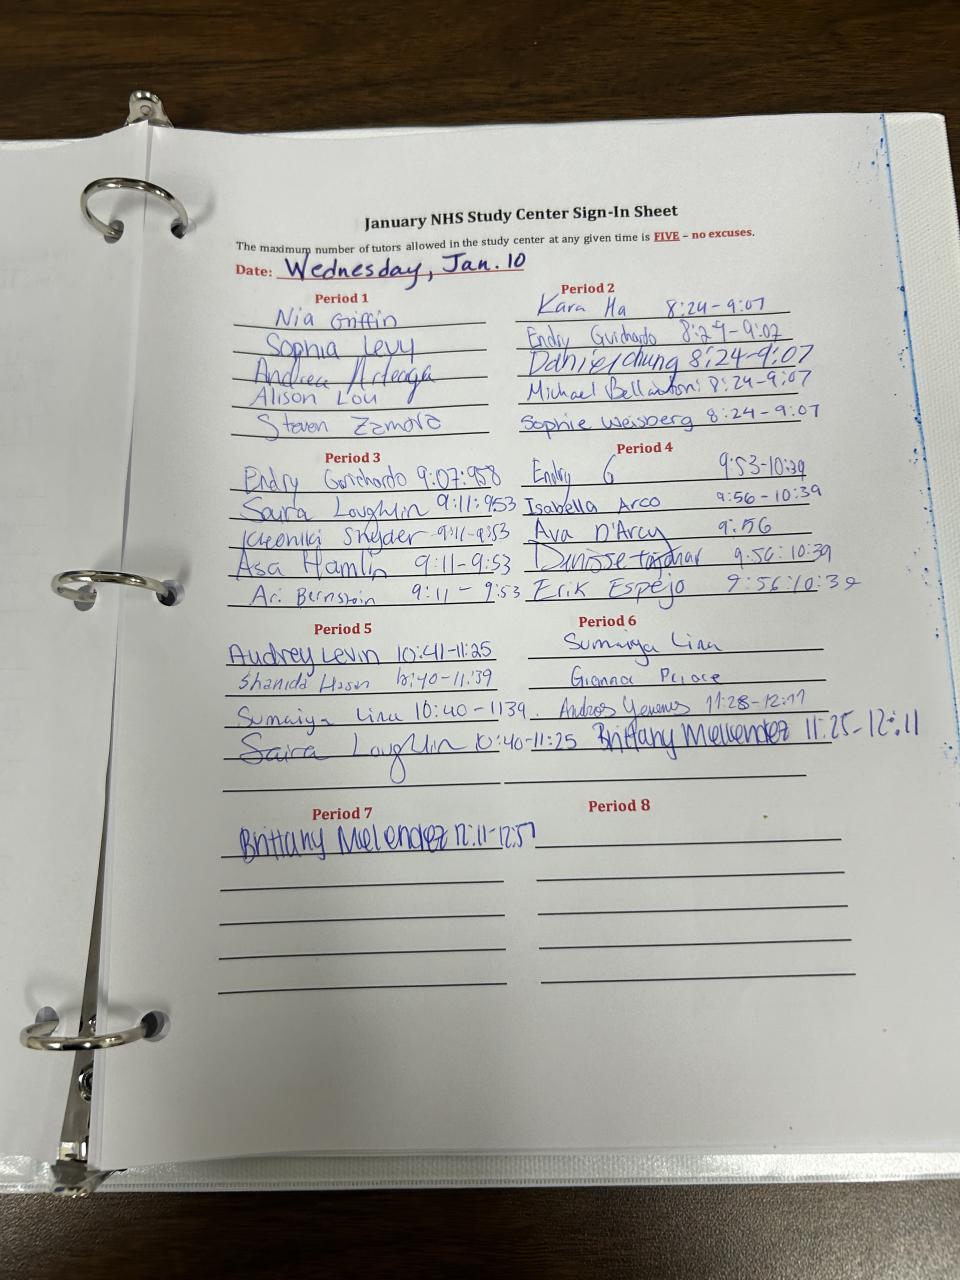 January NHS Study Center Sign-In Sheet
The maximum number of tutors allowed in the study center at any given time is FIVE – no excuses.
Date: Wednesday, Jan. 10
Period 1
Nia Griffin
Sophia Levy
Andrea Arteaga
Alison Lou
Steven Zamora
Period 2
Kara Ha 8:24-9:07
Endry Guichardo 8:24-9:07
Daniel chung 8:24-9:07
Michael 8:24-9:07
Sophie Weisberg 8:24-9:07
Period 3
Endry Guichardo 9:07:958
Saira Loughlin 9:11:953
Snyder 9:11-9:53
Asa Hamlin 9:11-9:53
Ari Bernstein 9:11-9:53
Period 4
Endry G 9:53-10:39
Isabella Arco 9:56-10:39
Ava D'Arcy 9:56
9:56:10:39
Erik Espejo 9:56:10:39
Period 5
Audrey Levin 10:41-11:25
Shanida Hasan
Sumaiya Lina 10:40-1139.
Saira Loughlin 10:40-11:25
Period 6
Sumaiya Lina
Gianna
11:28-12:11
Brittany Mellendez 11:25-12:11
Period 7
Brittany Melendez 12:11-12:57
Period 8